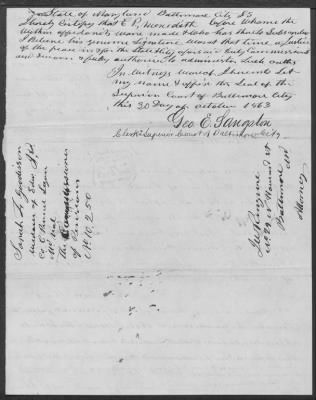 State of Maryland Baltimore City SS
I hereby Certify that E. P. Meredith before whome the
within affidavits were made & who has thereto Subscribed
Genuine Signature was at that time a Justice
of the peace in & for the State & City aforesaid duly Commissioned
and Sworn & fully authorised to administer Such oaths
In testimony whereof I hereunto Set
my name & affix the Seal of the
Superior Court of Baltimore City
this 30 Day of October 1863
Geo E. Sangston
Clerk Superior Court of Baltimore City
Sarah L Goodison
widow of
Co E Purnell Legion
Md Vol
the Commissioner
of Pensions
No 10,250
Baltimore Md
Attorney